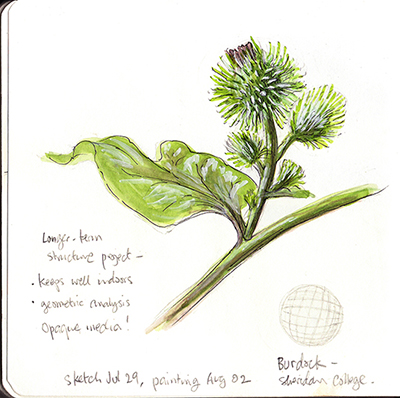 Longer-term
structure project –
· keeps well indoors
· geometric analysis
Opaque media!
Burdock –
Sheridan College.
sketch Jul 29, painting Aug 02